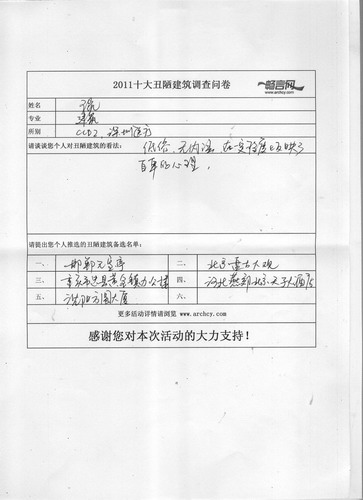 2011十大丑陋建筑调查问卷
畅言网
www.archcy.com
姓名
专业 建筑
所别 CCDI
请谈谈您个人对丑陋建筑的看法: 低俗、无内涵、在一定程度上反映了
百年的心理。
请提出您个人推选的丑陋建筑备选名单:
一、 邯郸元宝亭 二、 北京盘古大观
重庆市忠县黄金镇办公楼 四、 河北燕郊北京天子大酒店
五、 沈阳方圆大厦 六、
更多活动详情请浏览 www.archcy.com
感谢您对本次活动的大力支持!